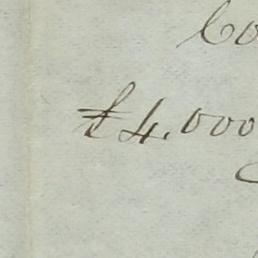 Co
£4.000